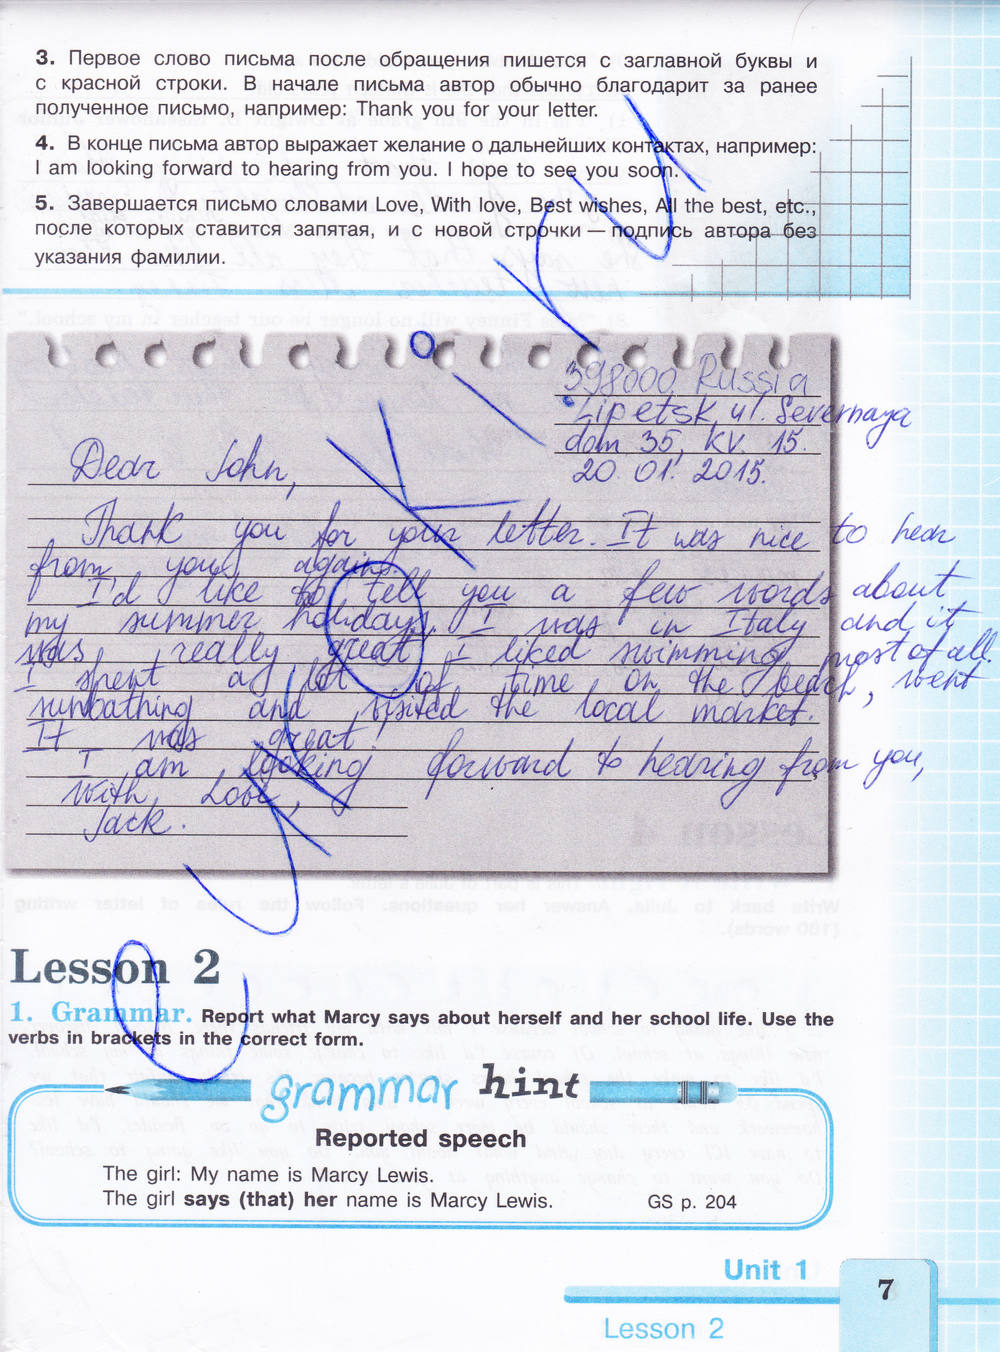 3. Первое слово письма после обращения пишется с заглавной буквы и
с красной строки. В начале письма автор обычно благодарит за ранее
полученное письмо, например: Thank you for your letter.
4. В конце письма автор выражает желание о дальнейших контактах, например:
I am looking forward to hearing from you. I hope to see you soon.
5. Завершается письмо словами Love, With love, Best wishes, All the best, etc.,
после которых ставится запятая, и с новой строчки — подпись автора без
указания фамилии.
398000 Russia
Lipetsk, ul. Severnaya
dom 35, kv. 15.
20. 01. 2015.
Dear John,
Thank you for your letter. It was nice to hear
from you again.
I'd like to tell you a few words about
my summer holidays. I was in Italy and it
was really great. I liked swimming most of all.
I spent a lot of time on the beach, went
sunbathing and visited the local market.
It was great!
I am looking forward to hearing from you,
with Love,
Jack.
Lesson 2
1. Grammar. Report what Marcy says about herself and her school life. Use the
verbs in brackets in the correct form.
grammar hint
Reported speech
The girl: My name is Marcy Lewis.
The girl says (that) her name is Marcy Lewis.
GS p. 204
Unit 1
7
Lesson 2